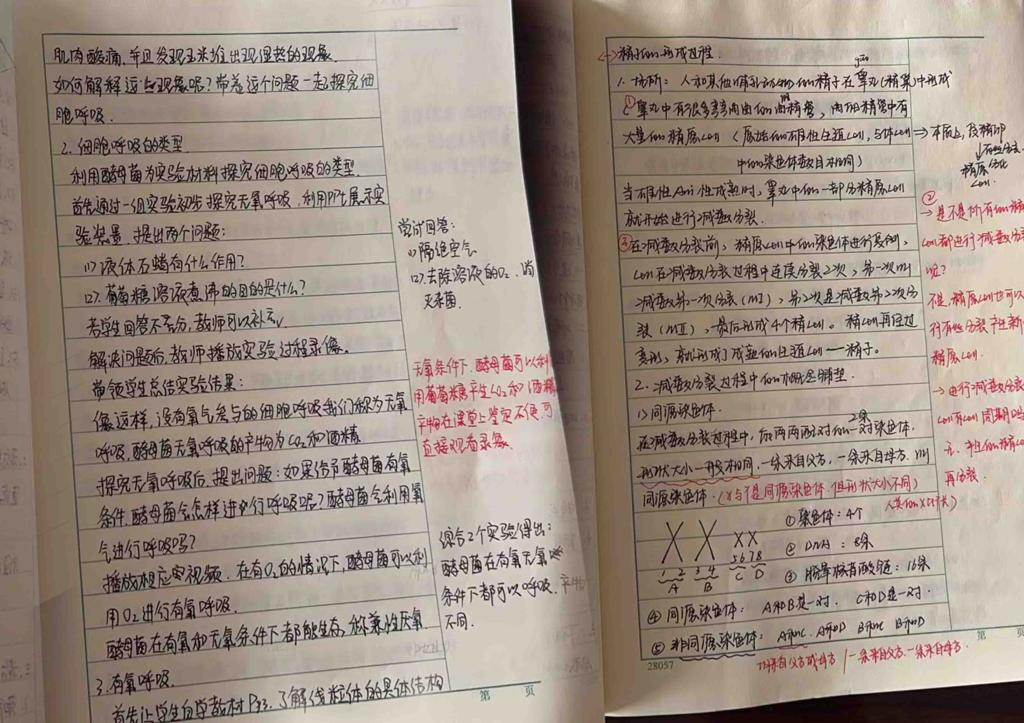 肌肉酸痛,并且发现玉米堆出现湿热的现象.
如何解释这些现象呢?带着这个问题一起探究细
胞呼吸.
2.细胞呼吸的类型
利用酵母菌为实验材料探究细胞呼吸的类型.
首先通过一组实验初步探究无氧呼吸.利用PPt展示实
验装置,提出两个问题:
(1)液体石蜡有什么作用?
(2)葡萄糖溶液煮沸的目的是什么?
若学生回答不充分,教师可以补充.
解决问题后,教师播放实验过程录像.
带领学生总结实验结果:
像这样,没有氧气参与的细胞呼吸我们称为无氧
呼吸.酵母菌无氧呼吸的产物为CO2和酒精
探究无氧呼吸后,提出问题:如果给予酵母菌有氧
条件,酵母菌会怎样进行呼吸呢?酵母菌会利用氧
气进行呼吸吗?
播放相应实视频.在有O2的情况下,酵母菌可以利
用O2进行有氧呼吸.
酵母菌在有氧和无氧条件下都能生存,称兼性厌氧
3.有氧呼吸.
首先让学生自学教材P93.了解线粒体的具体结构
尝试回答:
(1)隔绝空气
(2)去除溶液的O2.消
灭杂菌.
无氧条件下.酵母菌可以利
用葡萄糖产生CO2和酒精
产物在课堂上鉴定不便可
直接观看录像.
综合2个实验得出:
酵母菌在有氧无氧
条件下都可以呼吸.产物
不同.
第 页
精子的形成过程.
1.场所:人和其他哺乳动物的精子在睾丸(精巢)中形成
gāo
①睾丸中有很多弯弯曲曲的曲精管,曲细精管中有
大量的精原cell(原始的雄性生殖cell,与体cell
中的染色体数目相同)
当雄性Ani性成熟时,睾丸中的一部分精原cell
就开始进行减数分裂.
③在减数分裂前,精原cell中的染色体进行复制,
cell在减数分裂过程中连续分裂2次,第一次叫
减数第一次分裂(MI),第2次是减数第2次分
裂(MII),最后形成4个精cell。精cell再经过
变形,就形成了成熟的生殖cell——精子。
2.减数分裂过程中的概念辨望.
1)同源染色体.
在减数分裂过程中,后两两配对的一对2条染色体.
形状大小一般相同,一条来自父方,一条来自母方.叫
同源染色体.(X与Y是同源染色体.但形状大小不同)
①染色体:4个
②DNA:8条
③脱氧核苷酸链:16条
1 2 3 4 5 6 7 8
A B C D
④同源染色体:A和B是一对.C和D是一对.
⑤非同源染色体:A和C.A和D B和C B和D
均来自父方或母方/一条来自父方.一条来自母方.
28057
第 页
②
→是不是所有的精原
cell都进行减数分裂
呢?
不是.精原cell也可以
进行有丝分裂产生新
精原cell.
→进行减数分裂
再分裂.